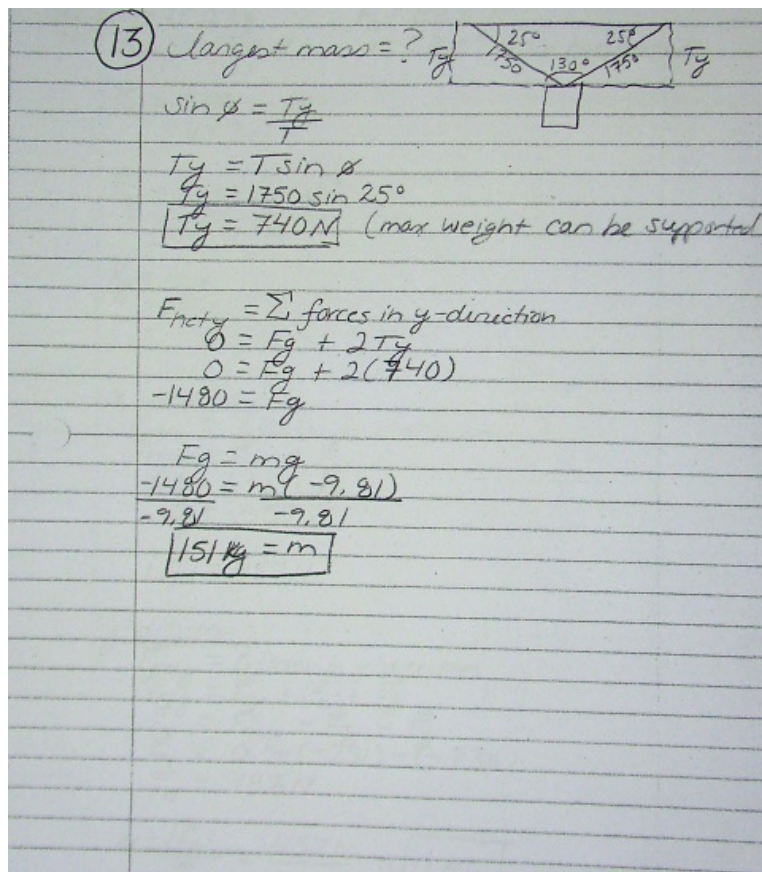 13 largest mass = ?
Ty 25° 25° Ty
1750 130° 1750
sin ø = Ty
T
Ty = T sin ø
Ty = 1750 sin 25°
Ty = 740N (max weight can be supported
Fnety = Σ forces in y-direction
0 = Fg + 2Ty
0 = Fg + 2(740)
-1480 = Fg
Fg = mg
-1480 = m(-9.81)
-9.81 -9.81
151 kg = m